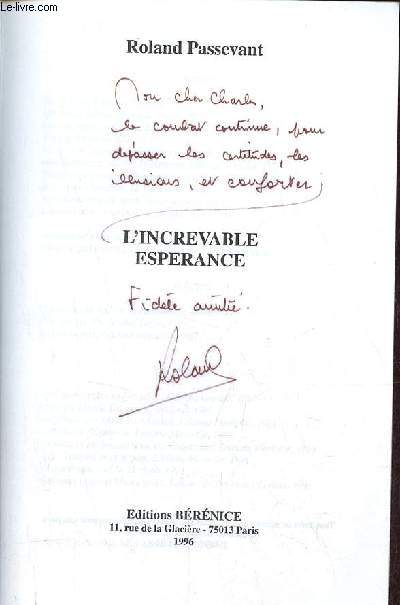 Le-livre.com
Roland Passevant
Mon cher Charles,
le combat continue, pour
dépasser les certitudes, les
illusions, et conforter
L'INCREVABLE
ESPERANCE
Fidèle amitié.
Roland
Editions BÉRÉNICE
11, rue de la Glacière - 75013 Paris
1996